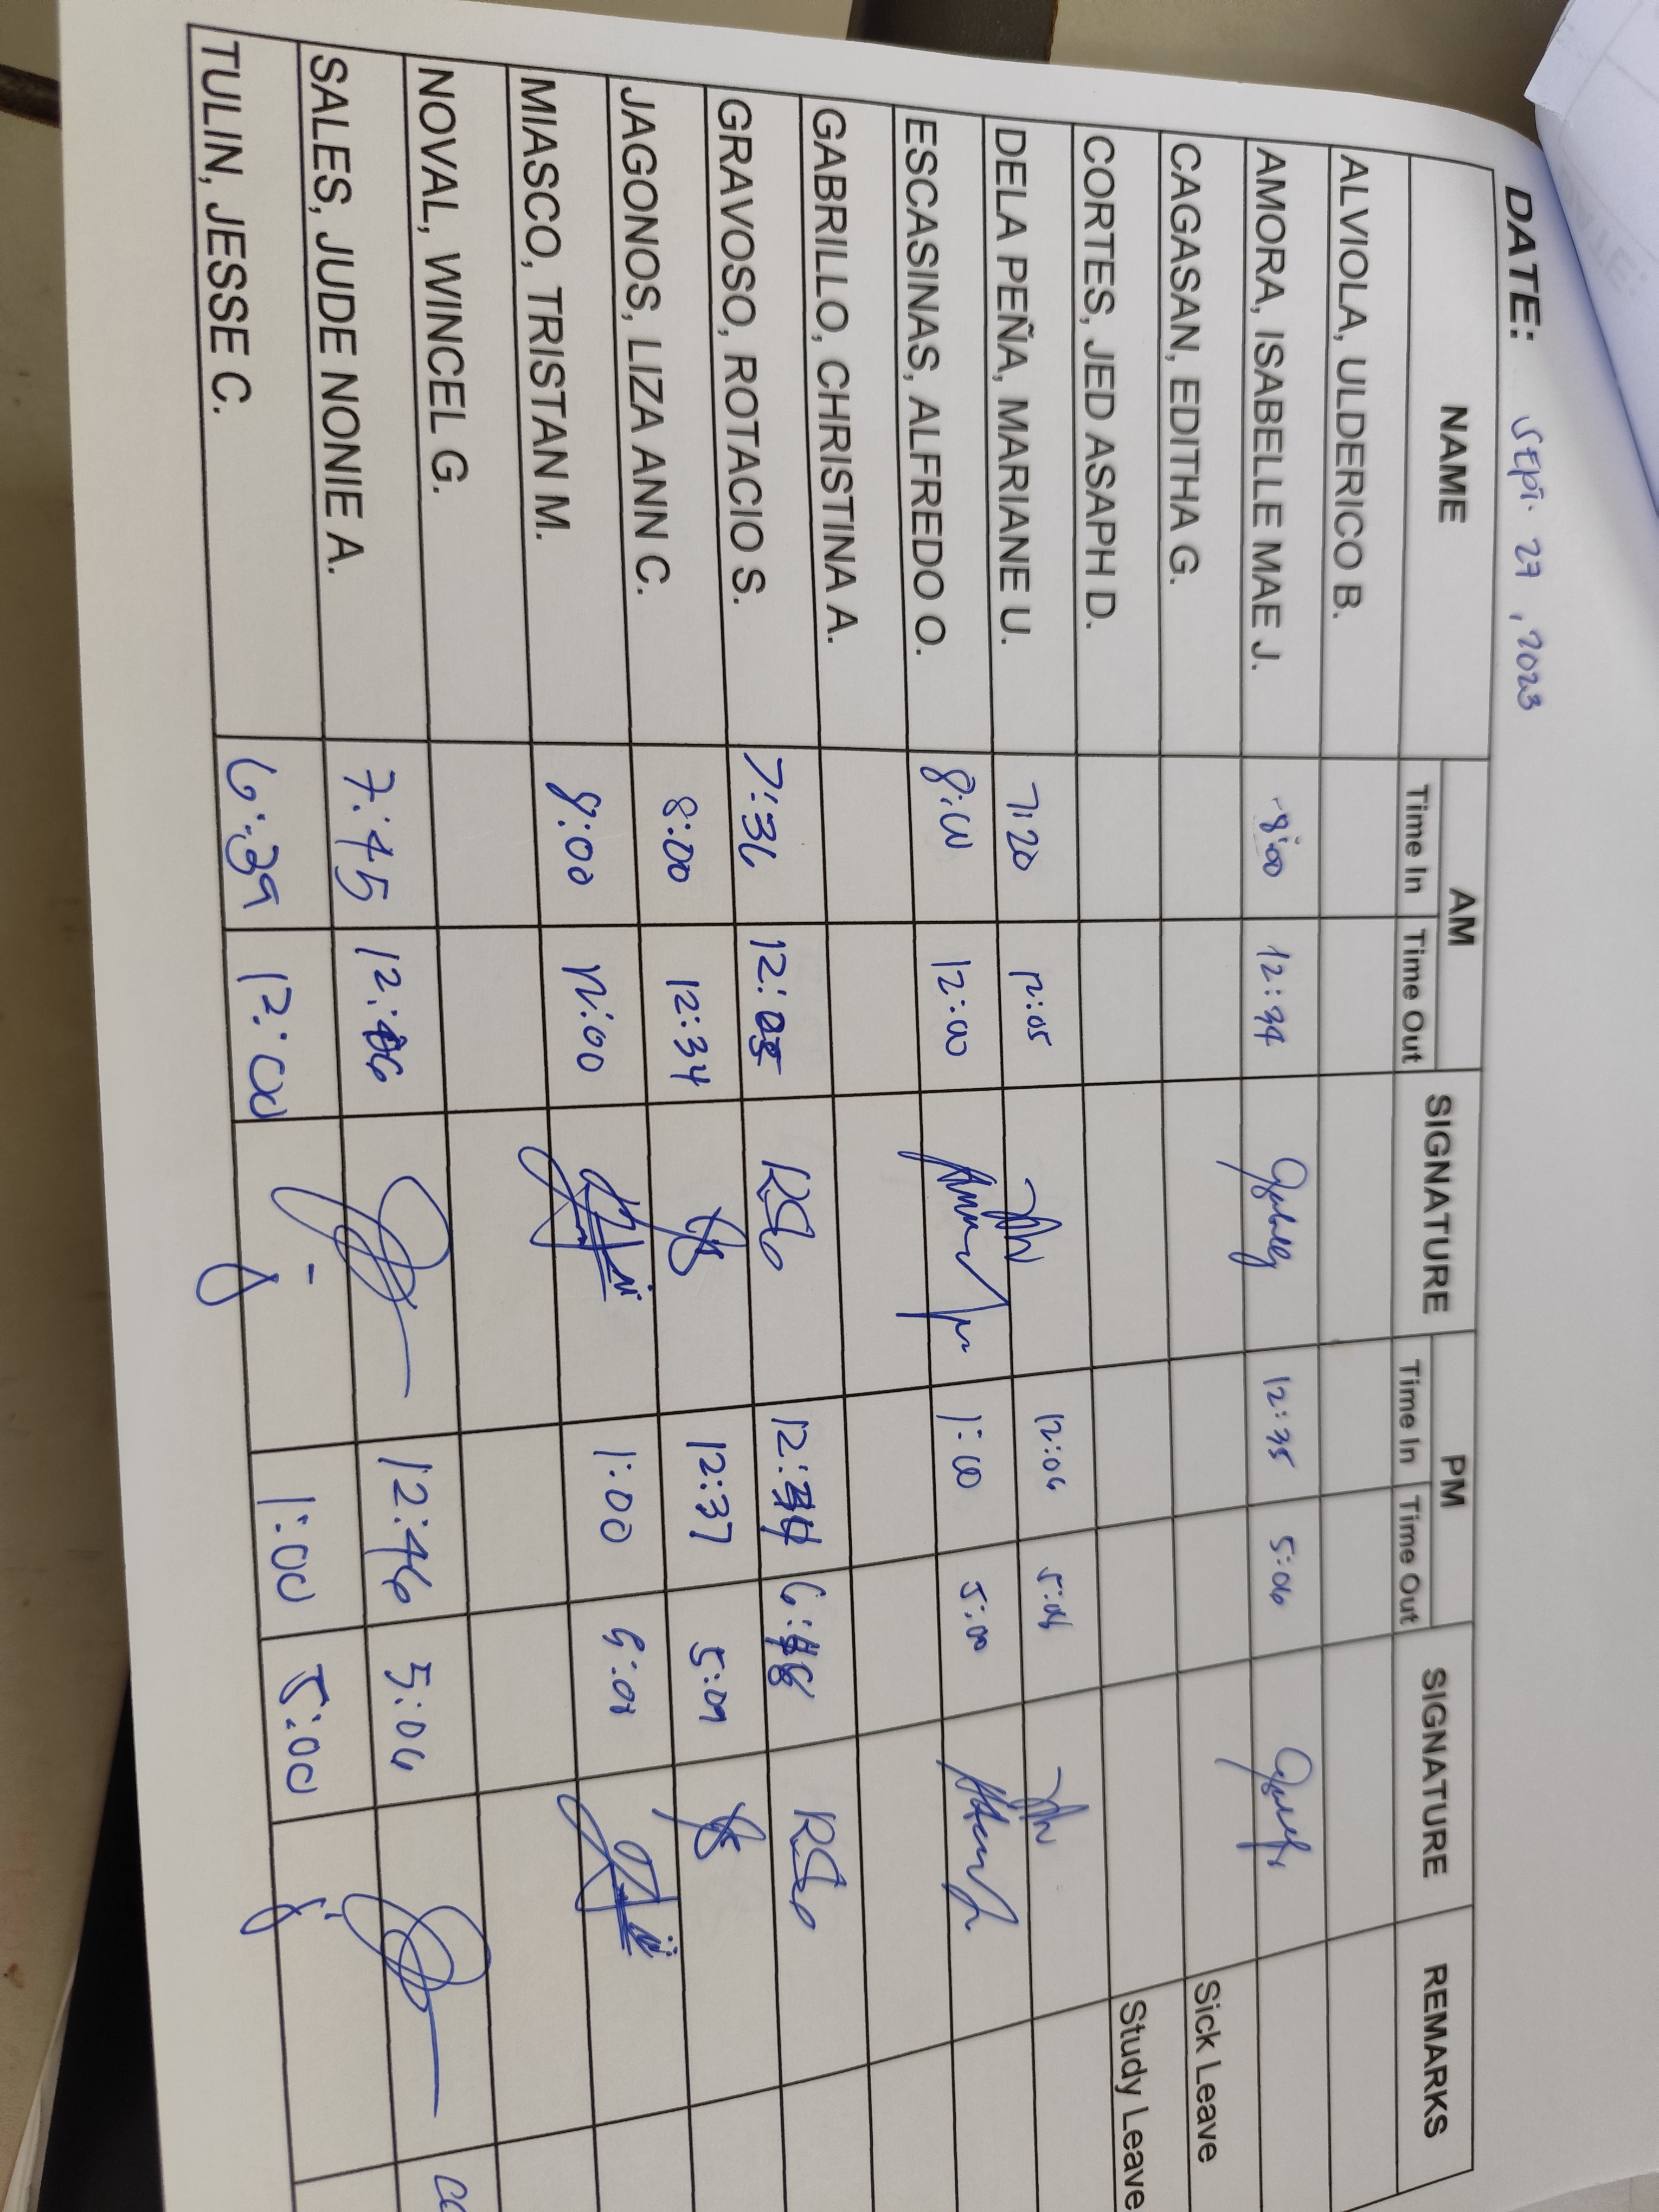 DATE: Sept. 27, 2023
NAME AM SIGNATURE PM SIGNATURE REMARKS
Time In Time Out Time In Time Out
ALVIOLA, ULDERICO B.
AMORA, ISABELLE MAE J. 8:00 12:34 12:35 5:06
CAGASAN, EDITHA G. Sick Leave
CORTES, JED ASAPH D. Study Leave
DELA PEÑA, MARIANE U. 7:20 12:05 12:06 5:06
ESCASINAS, ALFREDO O. 8:00 12:00 1:00 5:00
GABRILLO, CHRISTINA A.
GRAVOSO, ROTACIO S. 7:36 12:05
JAGONOS, LIZA ANN C. 8:00 12:34 12:37 5:09
MIASCO, TRISTAN M. 8:00 12:00 1:00
NOVAL, WINCEL G.
SALES, JUDE NONIE A. 7:45 12:06 12:46 5:06
TULIN, JESSE C. 6:39 12:00 1:00 5:00